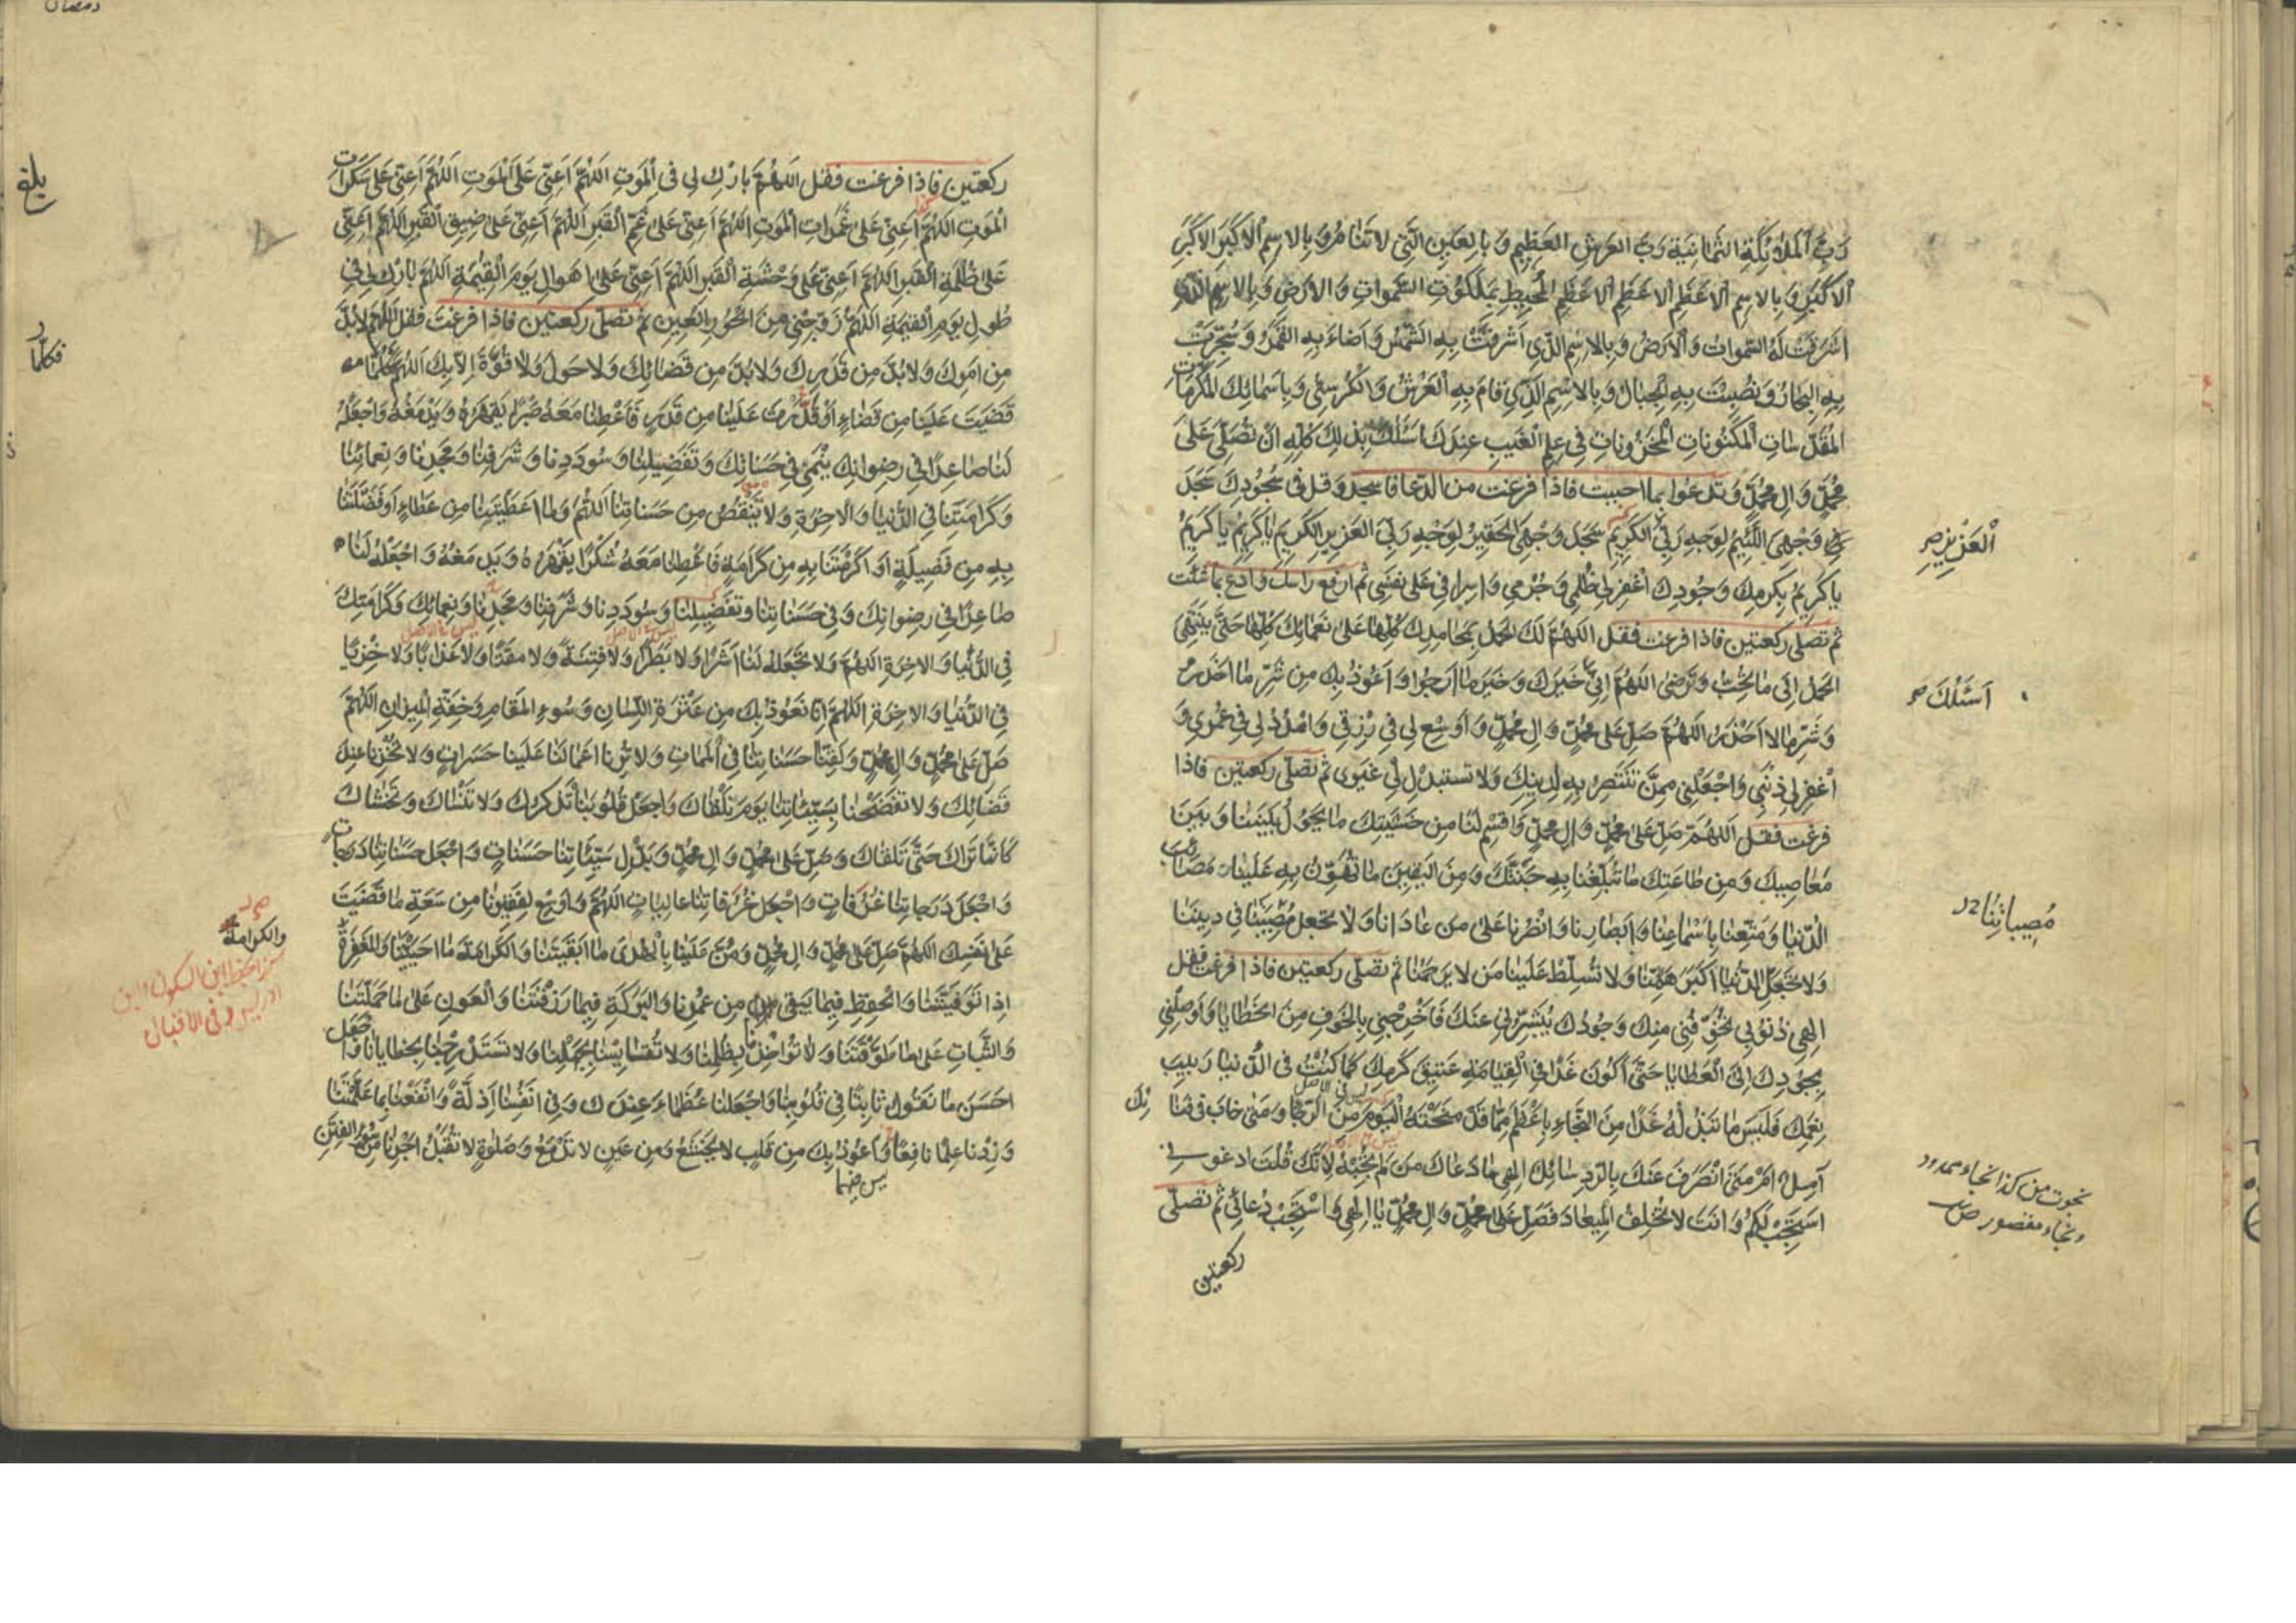 رَبِّ الْمَلٰئِكَةِ الثَّمانِيَةِ رَبَّ العَرْشِ العَظِيمِ وَبِالعَيْنِ الَّتِي لا تَنامُ وَبِالاِسْمِ الْأكْبَرِ الاكْبَرِ
الاكْبَرِ وَبِالاِسْمِ الاَعْظَمِ الاَعْظَمِ الاَعْظَمِ الْمُحِيطِ بِمَلَكُوتِ السَّمواتِ وَالاَرْضِ وَبِالاِسْمِ الَّذِي
اَشْرَقَتْ لَهُ السَّمواتُ وَالْاَرْضُ وَبِالاِسْمِ الَّذِي اَشْرَقَتْ بِهِ الشَّمْسُ وَاَضاءَ بِهِ القَمَرُ وَسُجِّرَتْ
بِهِ البِحارُ وَنُصِبَتْ بِهِ الْجِبالُ وَبِالاِسْمِ الَّذِي قامَ بِهِ الْعَرْشُ وَالْكُرْسِيُّ وَبِاَسْمائِكَ الْمُكَرَّماتِ
المُقَدَّساتِ الْمَكْنُوناتِ الْمَخْزُوناتِ فِي عِلْمِ الْغَيْبِ عِنْدَكَ اَسْئَلُكَ بِذلِكَ كُلِّهِ اَنْ تُصَلِّيَ عَلىٰ
مُحَمَّدٍ وَالِ مُحَمَّدٍ وَتدعوا بما احببت فاذا فرغت من الدعا فاسجد وقل فى سجودك سَجَدَ
وَجْهِيَ اللَّئِيمُ لِوَجْهِ رَبِّيَ الكَرِيمِ سَجَدَ وَجْهِيَ الْحَقِيرُ لِوَجْهِ رَبِّيَ العَزِيزِ الكَرِيمِ يا كَرِيمُ يا كَرِيمُ
العَزِيزِ
يا كَرِيمُ بِكَرَمِكَ وَجُودِكَ اغْفِرْ لِي ظُلْمِي وَجُرْمِي وَاِسْرافِي عَلىٰ نَفْسِي ثم ارفع راسك وادع بما شئت
ثم تصلى ركعتين فاذا فرغت فقل اللّهُمَّ لَكَ الحَمْدُ بِمَحامِدِكَ كُلِّها عَلىٰ نَعْمائِكَ كُلِّها حَتّىٰ يَنْتَهِيَ
الحَمْدُ اِلىٰ ما تُحِبُّ وَتَرْضىٰ اللّهُمَّ اِنِّي خَيْرَكَ وَخَيْرَ ما اَرْجُوا وَاَعُوذُ بِكَ مِن شَرِّ ما اَحْذَرُ
اَسْئَلُكَ
وَشَرِّ ما لا اَحْذَرُ اللّهُمَّ صَلِّ عَلىٰ مُحَمَّدٍ وَالِ مُحَمَّدٍ وَاَوْسِعْ لِي فِي رِزْقِي وَامْدُدْ لِي فِي عُمْرِي وَ
اغْفِرْ لِي ذَنْبِي وَاجْعَلْنِي مِمَّنْ تَنْتَصِرُ بِهِ لِدِينِكَ وَلا تستبدل بِي غَيْرِي ثم تصلى ركعتين فاذا
فرغت فقل اللّهُمَّ صَلِّ عَلىٰ مُحَمَّدٍ وَالِ مُحَمَّدٍ وَاقْسِمْ لَنا مِن خَشْيَتِكَ ما يَحُولُ بَيْنَنا وَبَيْنَ
مَعاصِيكَ وَمِن طاعَتِكَ ما تُبَلِّغُنا بِهِ جَنَّتَكَ وَمِنَ اليَقِينِ ما تُهَوِّنُ بِهِ عَلَيْنا مَصائِبَ
مُصِيباتِنا
الدُّنيا وَمَتِّعْنا بِاَسْماعِنا وَاَبْصارِنا وَانْصُرْنا عَلىٰ مَن عادَانا وَلا تَجْعَل مُصِيبَتَنا فِي دِينِنا
وَلا تَجْعَلِ الدُّنيا اَكْبَرَ هَمِّنا وَلا تُسَلِّطْ عَلَيْنا مَن لا يَرْحَمُنا ثم تصلى ركعتين فاذا فرغت فقل
اِلهِي ذُنُوبِي تُخَوِّفُنِي مِنكَ وَجُودُكَ يُبَشِّرُنِي عَنْكَ فَاَخْرِجْنِي بِالخَوْفِ مِنَ الخَطايا وَاَوْصِلْنِي
بِجُودِكَ اِلَى الْعَطايا حَتّىٰ اَكُونَ غَدًا فِي القِيامَةِ عَتِيقَ كَرَمِكَ كَما كُنْتُ فى الدُّنيا رَبِيبَ
نِعَمِكَ فَلَيْسَ ما تَبْذُلُهُ غَدًا مِنَ النَّجاءِ بِاَعْظَمَ مِمّا قَدْ مَنَحْتَهُ الْيَوْمَ مِنَ الرَّجا وَمَتىٰ خابَ فى فَنا
ئِكَ
آمِلٌ اَمْ مَتىٰ انْصَرَفَ عَنْكَ بِالرَّدِ سائِلٌ اِلهِي ما دَعاكَ مَن لَمْ تُجِبْهُ لِاَنَّكَ قُلْتَ ادْعُونِي
نجوت من كذا نجاء ممدود
ونجاء مقصور ص
اَسْتَجِبْ لَكُمْ وَانتَ لا تُخْلِفُ الْمِيعادَ فَصَلِّ عَلىٰ مُحَمَّدٍ وَالِ مُحَمَّدٍ يا اِلهِي وَاسْتَجِبْ دُعائِي ثم تصلى
ركعتين
رمضان
ركعتين فاذا فرغت فقل اللّهُمَّ بارِكْ لِى فى الْمَوْتِ اللّهُمَّ اَعِنِّي عَلَى الْمَوْتِ اللّهُمَّ اَعِنِّي عَلىٰ سَكَراتِ
بلغ
الْمَوْتِ اللّهُمَّ اَعِنِّي عَلىٰ غَمَراتِ الْمَوْتِ اللّهُمَّ اَعِنِّي عَلىٰ غَمِّ الْقَبْرِ اللّهُمَّ اَعِنِّي عَلىٰ ضِيقِ الْقَبْرِ اللّهُمَّ اَعِنِّي
عَلىٰ ظُلْمَةِ القَبْرِ اللّهُمَّ اَعِنِّي عَلىٰ وَحْشَةِ الْقَبْرِ اللّهُمَّ اَعِنِّي عَلىٰ اَهْوالِ يَوْمِ الْقِيٰمَةِ اللّهُمَّ بارِكْ لِي فِي
طُولِ يَوْمِ القِيٰمَةِ اللّهُمَّ زَوِّجْنِي مِنَ الحُورِ العِينِ ثم تصلى ركعتين فاذا فرغت فقل اللّهُمَّ لابُدَّ
مِن اَمْرِكَ وَلا بُدَّ مِن قَدَرِكَ وَلا بُدَّ مِن قَضائِكَ وَلا حَوْلَ وَلا قُوَّةَ اِلّا بِكَ اللّهُمَّ كُلَّما
فكلّما
قَضَيْتَ عَلَيْنا مِن قَضاءٍ اَوْ قَدَّرْتَ عَلَيْنا مِن قَدَرٍ فَاَعْطِنا مَعَهُ صَبْرًا يَقْهَرُهُ وَيَدْمَغُهُ وَاجْعَلْهُ
لَنا صاعِدًا فِي رِضوانِكَ يَنْمِي فِي حَسَناتِنا وَتَفْضِيلِنا وَسُودَدِنا وَشَرَفِنا وَمَجْدِنا وَنَعْمائِنا
وَكَرامَتِنا فِي الدُّنيا وَالاخِرَةِ وَلا تَنْقُصْ مِن حَسَناتِنا اللّهُمَّ وَما اَعْطَيْتَنا مِن عَطاءٍ اَوْ فَضَّلْتَنا
بِهِ مِن فَضِيلَةٍ اَو اَكْرَمْتَنا بِهِ مِن كَرامَةٍ فَاَعْطِنا مَعَهُ شُكْرًا يَقْهَرُهُ وَيَدْمَغُهُ وَاجْعَلْهُ لَنا
صاعِدًا فِي رِضوانِكَ وَفِي حَسَناتِنا وَتَفْضِيلِنا وَسُودَدِنا وَشَرَفِنا وَمَجْدِنا وَنَعْمائِكَ وَكَرامَتِكَ
فِي الدُّنيا وَالاخِرَةِ اللّهُمَّ وَلا تَجْعَلْهُ لَنا اَشَرًا وَلا بَطَرًا وَلا فِتْنَةً وَلا مَقْتًا وَلا عَذابًا وَلا خِزْيًا
فِي الدُّنيا وَالاخِرَةِ اللّهُمَّ اِنّا نَعُوذُ بِكَ مِن عَثْرَةِ اللِّسانِ وَسُوءِ المَقامِ وَخِفَّةِ المِيزانِ اللّهُمَّ
صَلِّ عَلىٰ مُحَمَّدٍ وَالِ مُحَمَّدٍ وَلَقِّنا حَسَناتِنا فِي الْمَماتِ وَلا تُرِنا اَعْمالَنا عَلَيْنا حَسَراتٍ وَلا تُخْزِنا عِنْدَ
قَضائِكَ وَلا تَفْضَحْنا بِسَيِّئاتِنا يَوْمَ نَلْقاكَ وَاجْعَلْ قُلُوبَنا تَذْكُرُكَ وَلا تَنْساكَ وَتَخْشاكَ
كَاَنَّما تَراكَ حَتّىٰ تَلْقاكَ وَصَلِّ عَلىٰ مُحَمَّدٍ وَالِ مُحَمَّدٍ وَبَدِّلْ سَيِّئاتِنا حَسَناتٍ وَاجْعَل حَسَناتِنا دَرَجاتٍ
وَاجْعَلْ دَرَجاتِنا غُرُفاتٍ وَاجْعَل غُرُفاتِنا عالِياتٍ اللّهُمَّ وَاَوْسِعْ لِفَقِيرِنا مِن سَعَةِ ما قَضَيْتَ
عَلىٰ نَفْسِكَ اللّهُمَّ صَلِّ عَلىٰ مُحَمَّدٍ وَالِ مُحَمَّدٍ وَمُنَّ عَلَيْنا بِالْهُدىٰ ما اَبْقَيْتَنا وَالكَرامَةِ ما اَحْيَيْتَنا وَالمَغْفِرَةِ
والكرامة
ابن السكون وابن
ادريس وفى الاقبال
اِذا تَوَفَّيْتَنا وَالْحِفْظِ فِيما يَبْقىٰ مِن عُمْرِنا وَالبَرَكَةِ فِيما رَزَقْتَنا وَالْعَوْنِ عَلىٰ ما حَمَّلْتَنا
وَالثَّباتِ عَلىٰ ما طَوَّقْتَنا وَلا تُواخِذْنا بِظُلْمِنا وَلا تُقايِسْنا بِجَهْلِنا وَلا تَسْتَدْرِجْنا بِخَطايانا وَاجْعَل
اَحْسَنَ ما نَقُولُ ثابِتًا فِي قُلُوبِنا وَاجْعَلْنا عُظَماءَ عِنْدَكَ وَفِي اَنْفُسِنا اَذِلَّةً وَانْفَعْنا بِما عَلَّمْتَنا
وَزِدْنا عِلْمًا نافِعًا وَاَعُوذُ بِكَ مِن قَلْبٍ لا يَخْشَعُ وَمِن عَيْنٍ لا تَدْمَعُ وَصَلٰوةٍ لا تُقْبَلُ اَجِرْنا مِن سُوءِ الفِتَنِ
ليس فيهما